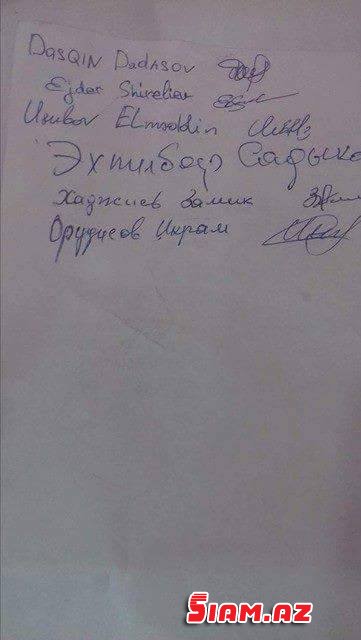 DASQIN DADASOV
Ejder Shireliev
Usubov Elmaddin
Эхтибар Садыхо
Хаджиев Замик
Орудисов Икрам
SIAM.AZ